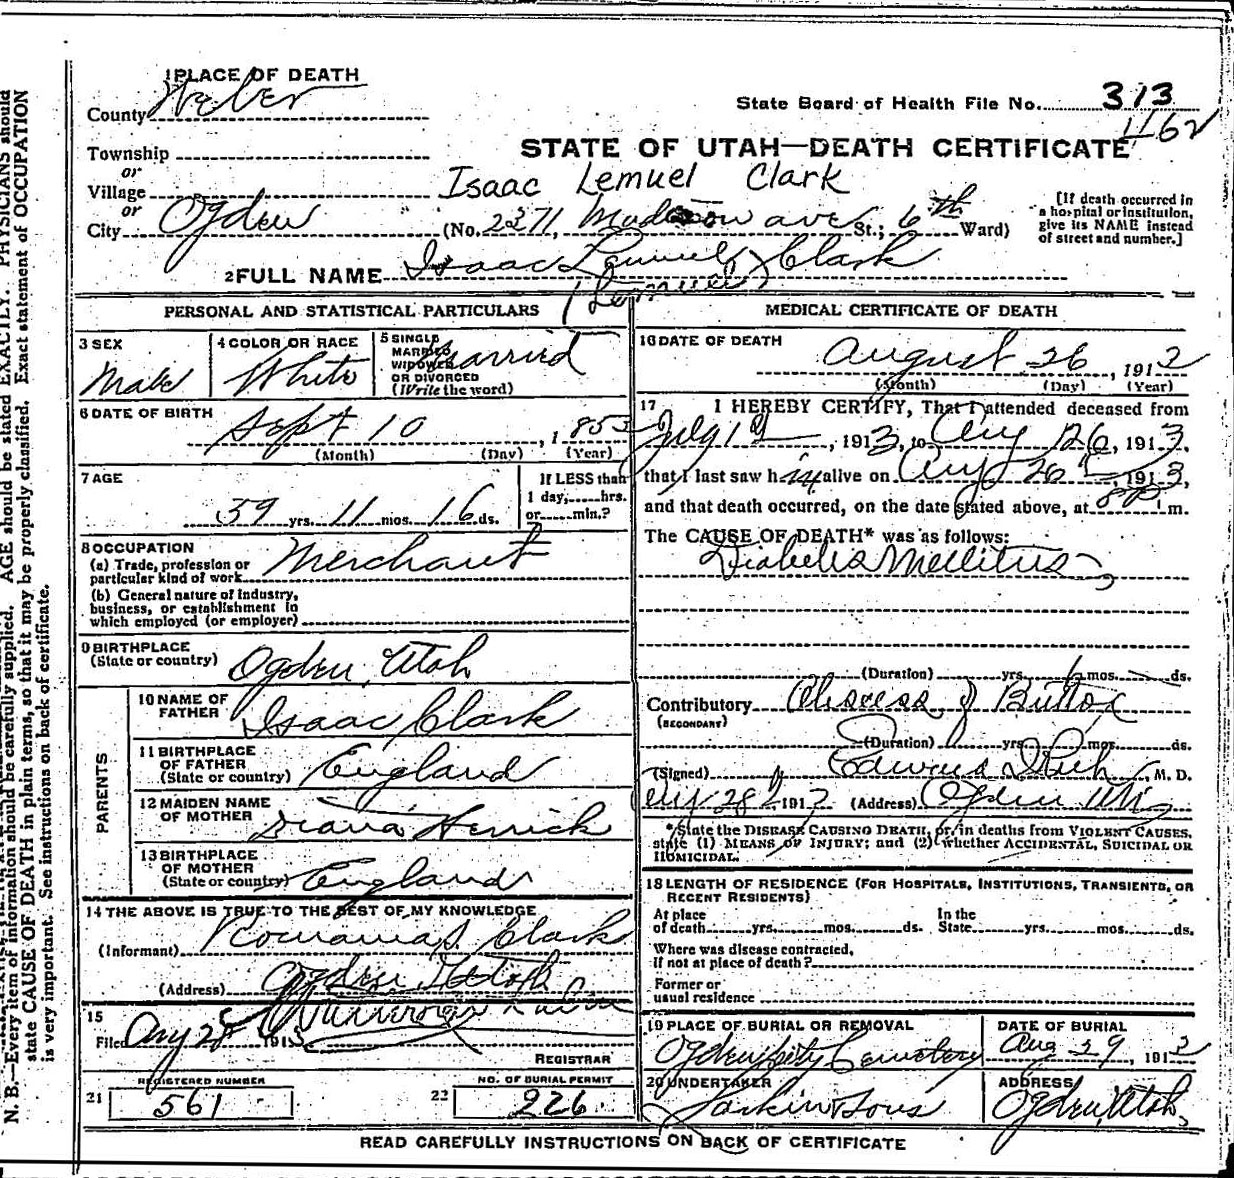 N. B.—Every item of information should be carefully supplied. AGE should be stated EXACTLY. PHYSICIANS should
state CAUSE OF DEATH in plain terms, so that it may be properly classified. Exact statement of OCCUPATION
is very important. See instructions on back of certificate.
1 PLACE OF DEATH
County Weber
State Board of Health File No. 313
1162
STATE OF UTAH—DEATH CERTIFICATE
Township
or
Village
Isaac Lemuel Clark
or
City Ogden (No. 2371, Madison ave St.; 6th Ward)
[If death occurred in
a hospital or institution,
give its NAME instead
of street and number.]
2 FULL NAME Isaac Lemuel Clark
(Lemuel)
PERSONAL AND STATISTICAL PARTICULARS
3 SEX
Male
4 COLOR OR RACE
White
5 SINGLE
MARRIED
WIDOWED
OR DIVORCED
(Write the word)
Married
6 DATE OF BIRTH
Sept 10, 1853
(Month) (Day) (Year)
7 AGE
59 yrs. 11 mos. 16 ds.
If LESS than
1 day, hrs.
or min.?
8 OCCUPATION
(a) Trade, profession or
particular kind of work Merchant
(b) General nature of industry,
business, or establishment in
which employed (or employer)
9 BIRTHPLACE
(State or country) Ogden, Utah
PARENTS
10 NAME OF
FATHER Isaac Clark
11 BIRTHPLACE
OF FATHER
(State or country) England
12 MAIDEN NAME
OF MOTHER Diana Herrick
13 BIRTHPLACE
OF MOTHER
(State or country) England
14 THE ABOVE IS TRUE TO THE BEST OF MY KNOWLEDGE
(Informant) Clark
(Address) Ogden Utah
15
Filed Aug 28 1913
REGISTRAR
REGISTERED NUMBER
21 561
NO. OF BURIAL PERMIT
22 226
MEDICAL CERTIFICATE OF DEATH
16 DATE OF DEATH
August 26, 1913
(Month) (Day) (Year)
17 I HEREBY CERTIFY, That I attended deceased from
July 1st, 1913, to Aug 26, 1913,
that I last saw him alive on Aug 26th, 1913,
and that death occurred, on the date stated above, at 8 P m.
The CAUSE OF DEATH* was as follows:
Diabetis Mellitus
(Duration) yrs. mos. ds.
Contributory Abscess of Buttox
(SECONDARY)
(Duration) yrs. mos. ds.
(Signed) Edward Rich, M. D.
Aug 28th 1913 (Address) Ogden Utah
*State the DISEASE CAUSING DEATH, or, in deaths from VIOLENT CAUSES,
state (1) MEANS OF INJURY; and (2) whether ACCIDENTAL, SUICIDAL OR
HOMICIDAL.
18 LENGTH OF RESIDENCE (FOR HOSPITALS, INSTITUTIONS, TRANSIENTS, OR
RECENT RESIDENTS)
At place
of death yrs. mos. ds.
In the
State yrs. mos. ds.
Where was disease contracted,
if not at place of death?
Former or
usual residence
19 PLACE OF BURIAL OR REMOVAL
Ogden City Cemetery
DATE OF BURIAL
Aug 29, 1913
20 UNDERTAKER
Larkin & Sons
ADDRESS
Ogden, Utah
READ CAREFULLY INSTRUCTIONS ON BACK OF CERTIFICATE